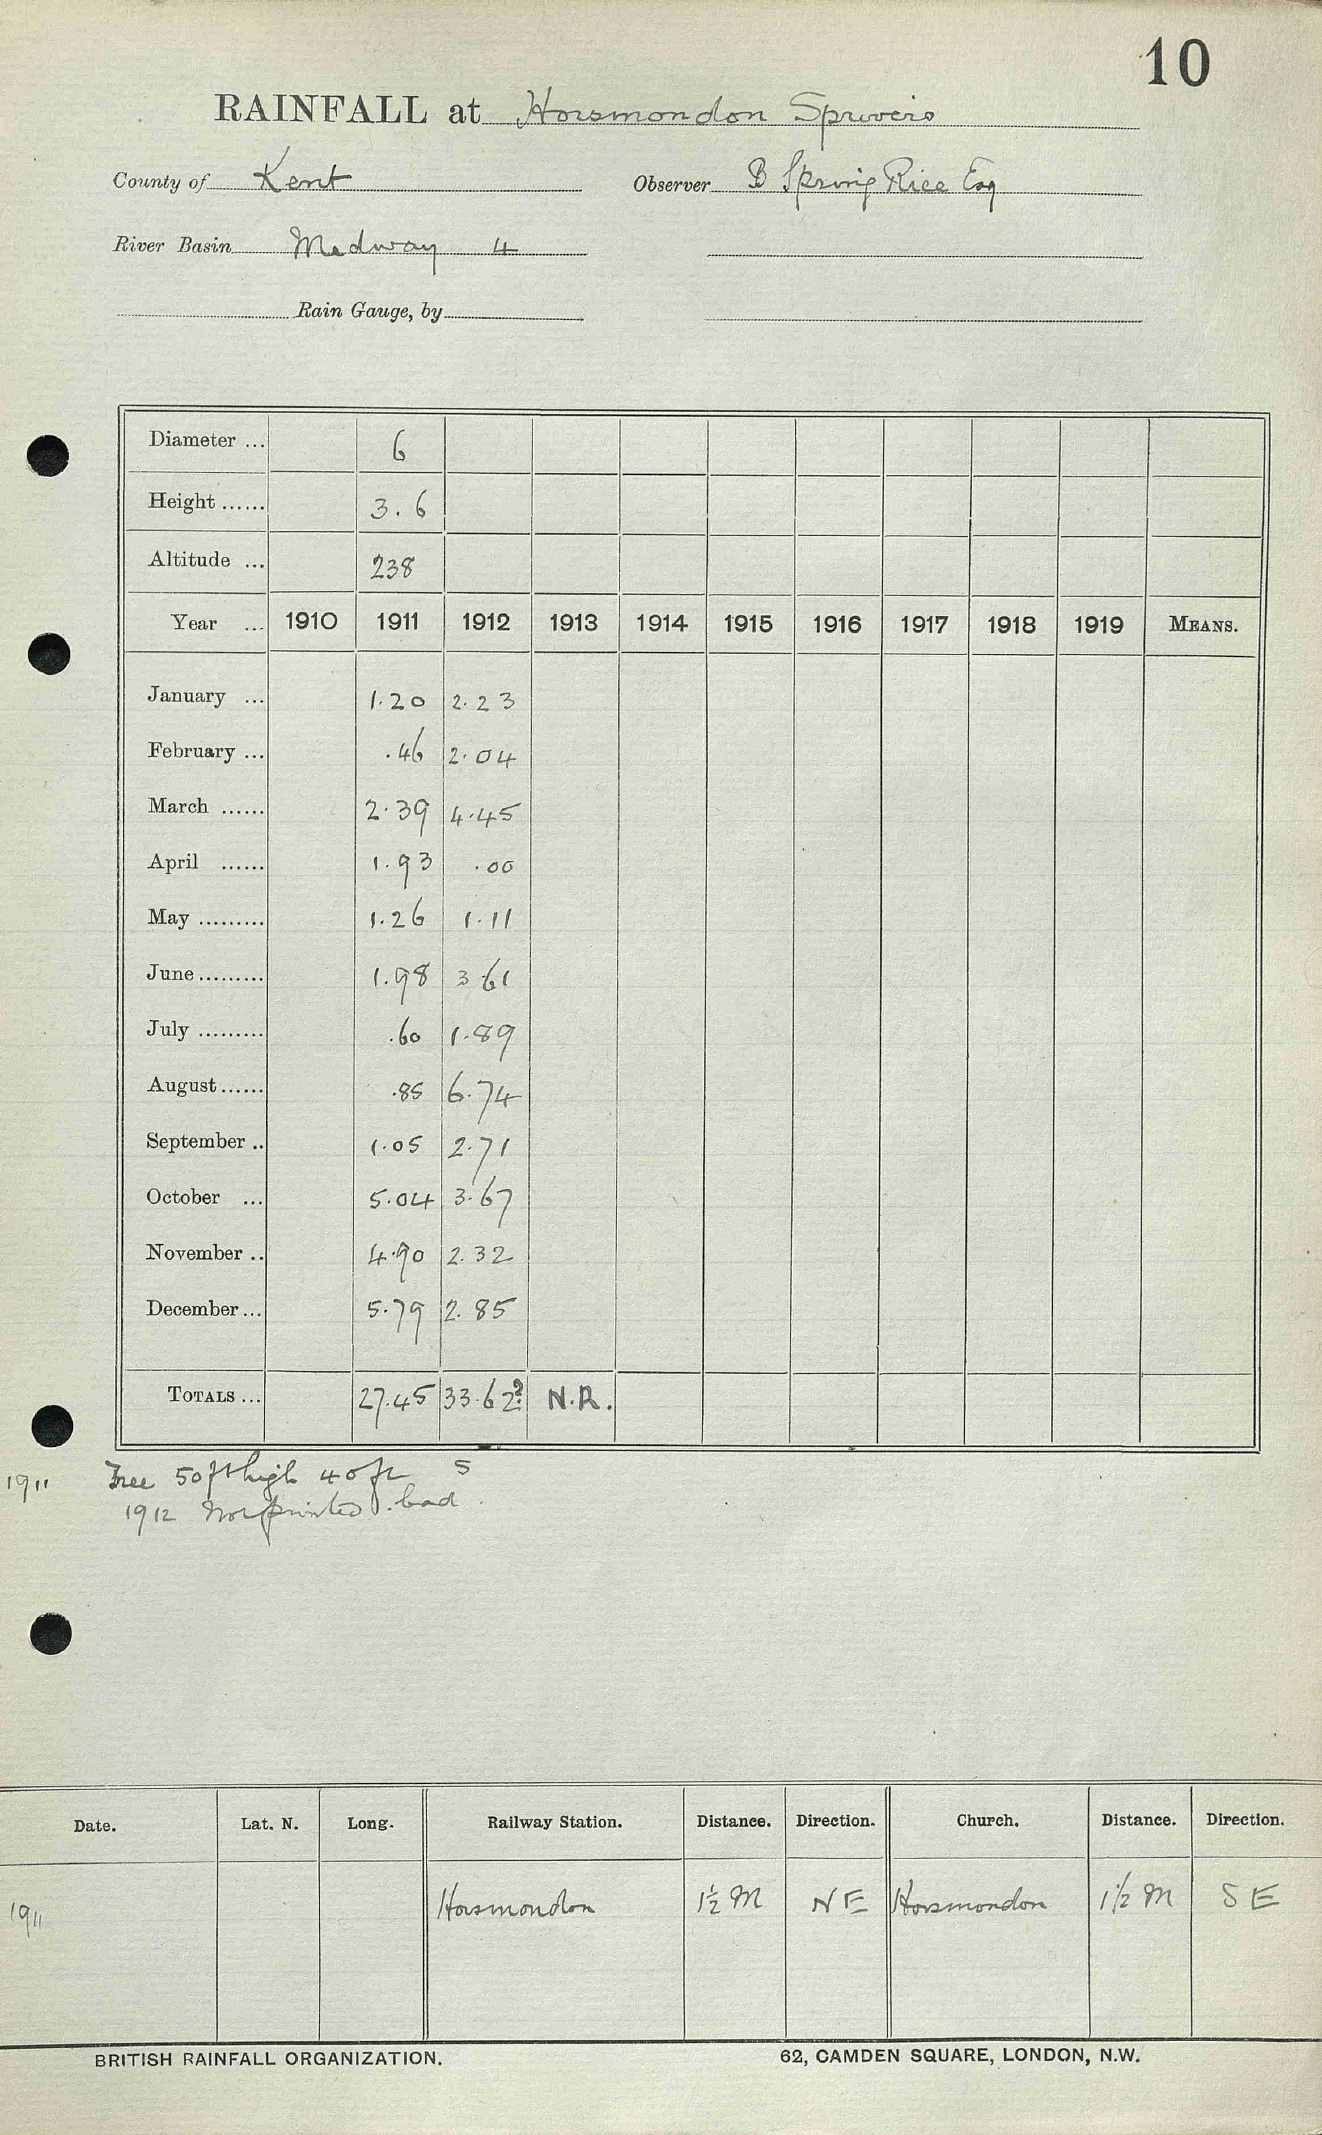 10
RAINFALL at Horsmondon Sprivers
County of Kent Observer B Spring Rice Esq
River Basin Medway 4
Rain Gauge, by
Diameter ... 6
Height ...... 3.6
Altitude ... 238
Year ... 1910 1911 1912 1913 1914 1915 1916 1917 1918 1919 MEANS.
January ... 1.20 2.23
February ... .46 2.04
March ...... 2.39 4.45
April ...... 1.93 .00
May ......... 1.26 1.11
June ......... 1.98 3.61
July ......... .60 1.89
August ...... .85 6.74
September .. 1.05 2.71
October ... 5.04 3.67
November .. 4.90 2.32
December ... 5.79 2.85
TOTALS ... 27.45 33.62? N.R.
1911 Tree 50ft high 40ft S
1912 Not printed. bad.
Date. Lat. N. Long. Railway Station. Distance. Direction. Church. Distance. Direction.
1911 Horsmondon 1½ M NE Horsmondon 1½ M SE
BRITISH RAINFALL ORGANIZATION. 62, CAMDEN SQUARE, LONDON, N.W.